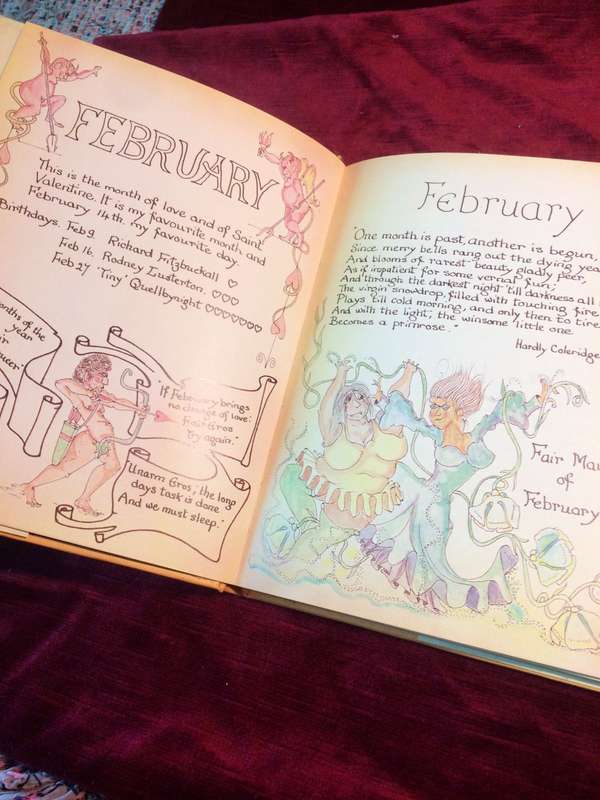 FEBRUARY
This is the month of love and of Saint
Valentine. It is my favourite month, and
February 14th. my favourite day.
Birthdays. Feb 9. Richard Fitzbuckall ♡
Feb 16. Rodney Lusterton. ♡♡♡
Feb 27 'Tiny' Quellbynight ♡♡♡♡♡♡♡
months of the
year
"If February brings
no change of love:
Fair Gros
try again."
"Unarm Gros', the long
days task is done
And we must sleep."
February
"One month is past, another is begun,
Since merry bells rang out the dying yea
And blooms of rarest beauty gladly peer,
As if impatient for some vernal fun;
And through the darkest night till darkness all
The virgin snowdrop, filled with touching fire
Plays till cold morning, and only then to tire
And with the light; the winsome little one
Becomes a primrose."
Hardly Coleridge
Fair Ma
of
February